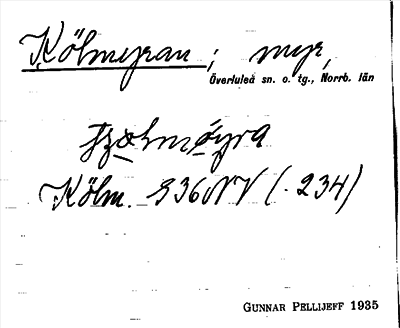 Kölmyran; myr,
Överluleå sn. o. tg., Norrb. län
Kölm. 936NV (. 234)
GUNNAR PELLIJEFF 1935